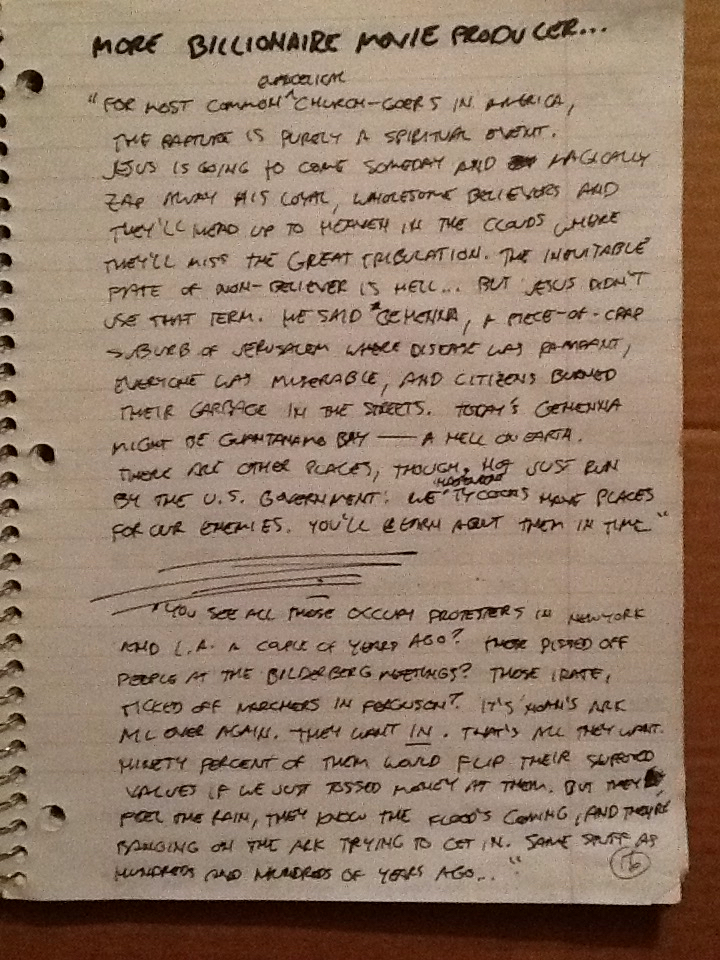 MORE BILLIONAIRE MOVIE PRODUCER...
EVANGELICAL
"FOR MOST COMMON ^ CHURCH-GOERS IN AMERICA,
THE RAPTURE IS PURELY A SPIRITUAL EVENT.
JESUS IS GOING TO COME SOMEDAY AND MAGICALLY
ZAP AWAY HIS LOYAL, WHOLESOME BELIEVERS AND
THEY'LL HEAD UP TO HEAVEN IN THE CLOUDS WHERE
THEY'LL MISS THE GREAT TRIBULATION. THE INEVITABLE
FATE OF NON-BELIEVER IS HELL... BUT JESUS DIDN'T
USE THAT TERM. HE SAID "GEHENNA, A PIECE-OF-CRAP
SUBURB OF JERUSALEM WHERE DISEASE WAS RAMPANT,
EVERYONE WAS MISERABLE, AND CITIZENS BURNED
THEIR GARBAGE IN THE STREETS. TODAY'S GEHENNA
MIGHT BE GUANTANAMO BAY — A HELL ON EARTH.
THERE ARE OTHER PLACES, THOUGH, NOT JUST RUN
BY THE U.S. GOVERNMENT. WE TYCOONS HAVE PLACES
FOR OUR ENEMIES. YOU'LL LEARN ABOUT THEM IN TIME."
"YOU SEE ALL THOSE OCCUPY PROTESTERS IN NEW YORK
AND L.A. A COUPLE OF YEARS AGO? THOSE PISSED OFF
PEOPLE AT THE BILDERBERG MEETINGS? THOSE IRATE,
TICKED OFF MARCHERS IN FERGUSON? IT'S NOAH'S ARK
ALL OVER AGAIN. THEY WANT IN. THAT'S ALL THEY WANT.
NINETY PERCENT OF THEM WOULD FLIP THEIR
VALUES IF WE JUST TOSSED MONEY AT THEM. BUT THEY
FEEL THE RAIN, THEY KNOW THE FLOOD'S COMING, AND THEY'RE
BANGING ON THE ARK TRYING TO GET IN. SAME STUFF AS
HUNDREDS AND HUNDREDS OF YEARS AGO..."